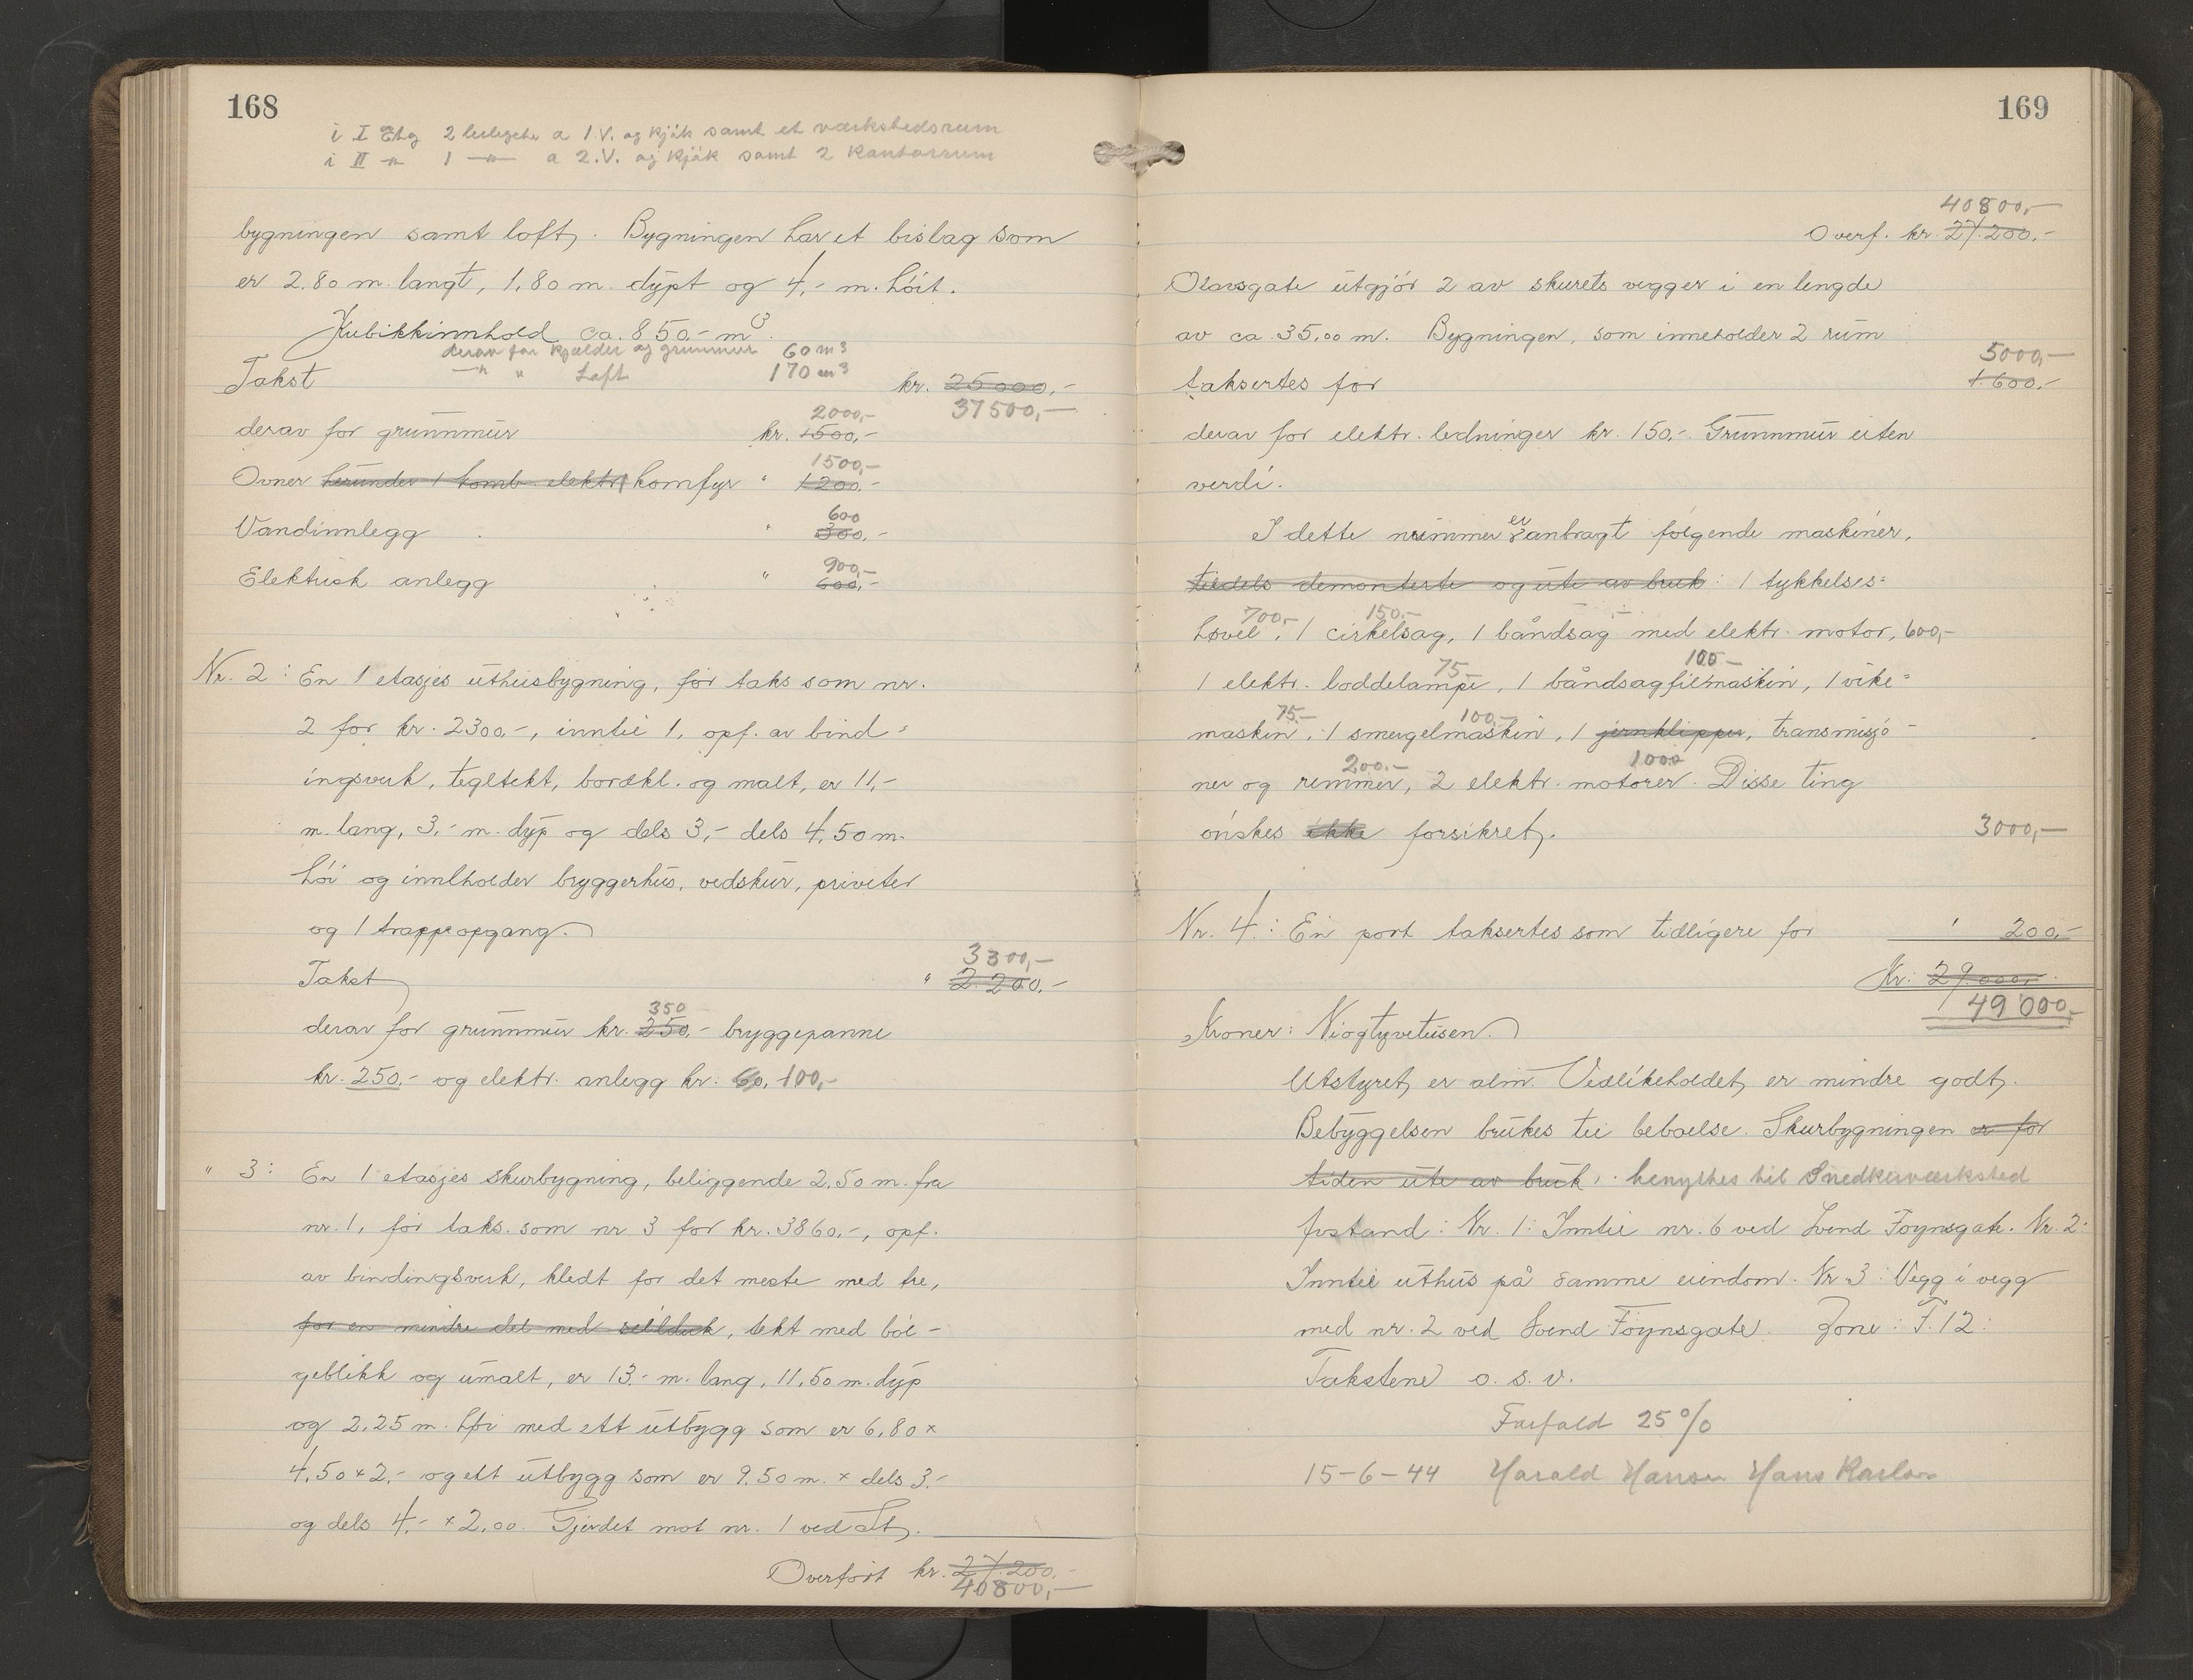 168
i I Etg 2 leiligete a 1.V. og kjøk samt et værkstedsrum
i II -"- 1 -"- a 2.V. og kjøk samt 2 Kontorrum
bygningen samt loft. Bygningen har et bislag som
er 2.80 m. langt, 1,80 m. dypt og 4,- m. høit.
Kubikkinnhold ca. 850,- m³.
derav for kjælder og grunmur 60 m³
-"- " Loft 170 m³
Takst kr. 25000,-
37500,-
2000,-
derav for grunnmur kr. 1500,-
1500,-
Ovner herunder 1 komb. elektr. komfyr " 1200,-
600
Vandinnlegg " 300,-
900,-
Elektrisk anlegg " 600,-
Nr. 2: En 1 etasjes uthusbygning, før taks som nr.
2 for kr. 2300,-, inntil 1, opf. av bind=
ingsverk, tegltekt, bordkl. og malt, er 11,-
m. lang, 3,- m. dyp og dels 3,- dels 4,50 m.
høi og innlholder bryggerhus, vedskur, priveter
og 1 trappeopgang.
3300,-
Takst " 2.200,-
350
derav for grunnmur kr. 250,- bryggepanne
kr. 250,- og elektr. anlegg kr: 60, 100,-
" 3: En 1 etasjes skurbygning, beliggende 2,50 m. fra
nr. 1, før taks. som nr 3 for kr. 3860,-, opf.
av bindingsverk, kledt for det meste med tre,
for en mindre del med seilduk, tekt med bøl-
geblikk og umalt, er 13,- m. lang, 11,50 m. dyp
og 2,25 m. høi med ett utbygg som er 6,80 x
4,50 x 2,- og ett utbygg som er 9,50 m. x dels 3,-
og dels 4,- x 2,00. Gjerdet mot nr. 1 ved St.
Overført kr. 27.200,-
40800,-
169
40800,-
Overf. kr. 27.200,-
Olavsgate utgjør 2 av skurets vegger i en lengde
av ca. 35,00 m. Bygningen, som inneholder 2 rum
5000,-
taksertes for 1.600,-
derav for elektr. ledninger kr. 150,- Grunnmur uten
verdi.
I dette nummer er anbragt følgende maskiner,
tildels demonterte og ute av bruk: 1 tykkelses=
700,- 150,-
høvel, 1 cirkelsag, 1 båndsag med elektr. motor, 600,-
75,- 100,-
1 elektr. loddelampe, 1 båndsagfilmaskin, 1 vike=
75,- 100,-
maskin, 1 smergelmaskin, 1 jernklipper, transmisjo-
200,- 1000
ner og remmer, 2 elektr. motorer. Disse ting
ønskes ikke forsikret. 3000,-
Nr. 4: En port taksertes som tidligere for ' 200,-
Kr: 29.000,-
49000,-
Kroner: Niogtyvetusen.
Utstyret er alm. Vedlikeholdet er mindre godt.
Bebyggelsen brukes til beboelse. Skurbygningen er for
tiden ute av bruk. benyttes til Snedkerværksted
Avstand: Nr. 1: Inntil nr. 6 ved Svend Foynsgate. Nr. 2:
Inntil uthus på samme eiendom. Nr 3: Vegg i vegg
med nr. 2 ved Svend Foynsgate. Zone: F. 12:
Takstene o. s. v.
Forfald 25 %
15-6-44 Harald Hansen Hans Karlsen